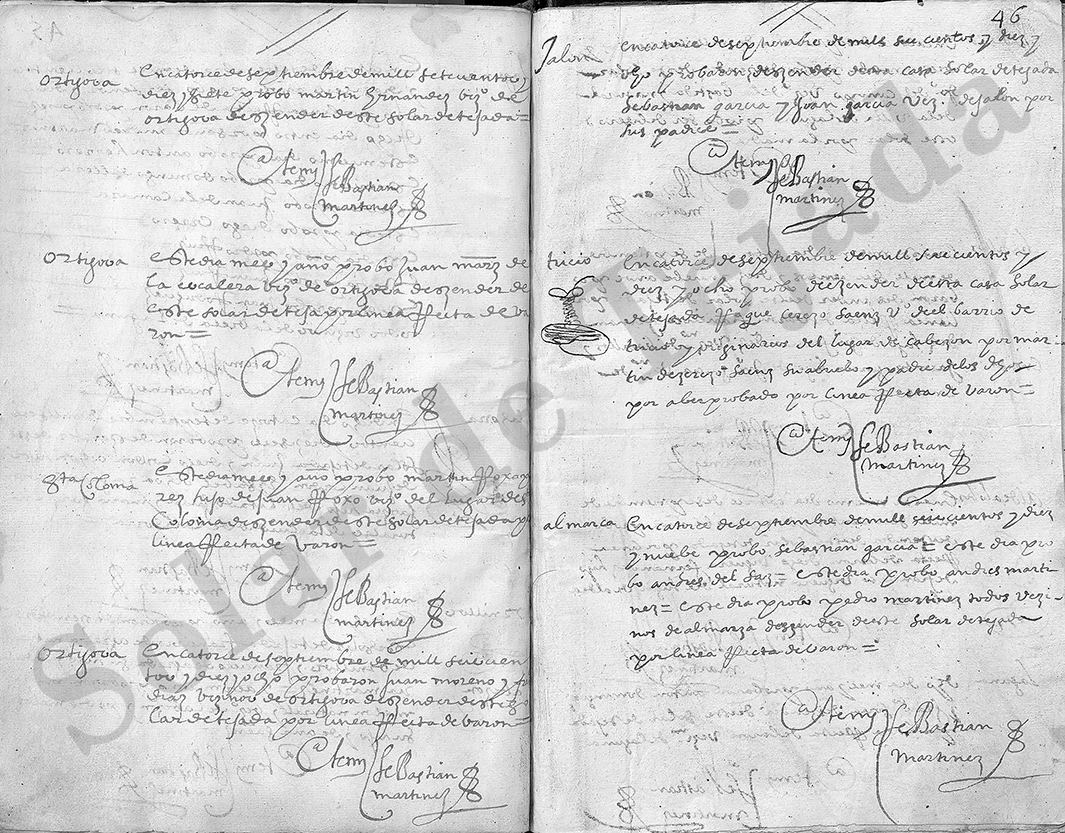 ortigosa
En catorce de septiembre de mill setecientos y
diez y siete probo martin hernandez vzº de
ortigosa deszender deste solar de tejada =
Ante mi
Sebastian
martinez
ortigosa
este dia mes y año probo Juan marnz de
la cocalera vzº de ortigosa deszender de
este solar de tejada por linea Recta de va
ron =
Ante mi
Sebastian
martinez
Sta Coloma
este dia mes y año probo martin Roxo
rez hijo de Juan Roxo vzº del lugar de S
Coloma deszender deste solar de tejada p
linea Recta de Varon =
Ante mi
Sebastian
martinez
ortigosa
En catorce de septiembre de mill seiscien
tos y diez y ocho probaron Juan moreno y
diaz vizinos de ortigosa deszender deste so
lar de tejada por linea Recta de varon =
Ante mi
Sebastian
martinez
46
Jalon
En catorce de septiembre de mill seiscientos y diez y
ocho probaron deszender desta casa solar de tejada
Sebastian garcia y Juan garcia vezºs de jalon por
sus padres =
Ante mi
Sebastian
martinez
tricio
En catorce de septiembre de mill seiscientos y
diez y ocho probo deszender desta casa solar
de tejada Roque Cerezo Saenz vº del barrio de
tricio y originarios del lugar de Cabezon por mar
tin de zerezo Saenz su abuelo y padre de los dhos
por aber probado por linea Recta de varon =
Ante mi
Sebastian
martinez
almarca
En catorce de septiembre de mill seiscientos y diez
y nuebe probo Sebastian garcia = este dia pro
bo andres del Saz = este dia probo andres marti
nez = este dia probo pedro martinez todos vezi
nos de almarza deszender deste solar de tejada
por linea Recta de varon =
Ante mi
Sebastian
Martinez
Solar de Tejada